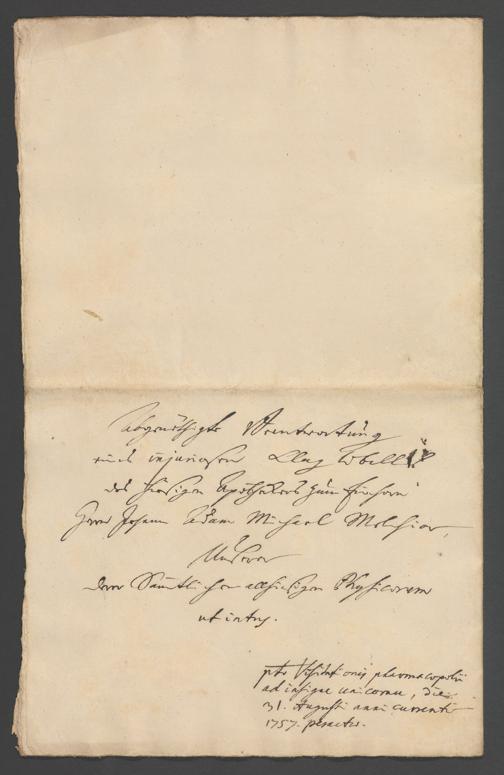 Abgenöthigte Verantwortung
eines injuriosen Klag Libells
des hiesigen Apothekers zum Einhorn
Herrn Johann Adam Michael Melchior,
Unserer
derer Sämtlichen allhiesigen Physicorum
ut intus.
pto Visitationis pharmacopolii
ad insigne unicornu, die
31. Augusti anni currentis
1757. peractae.